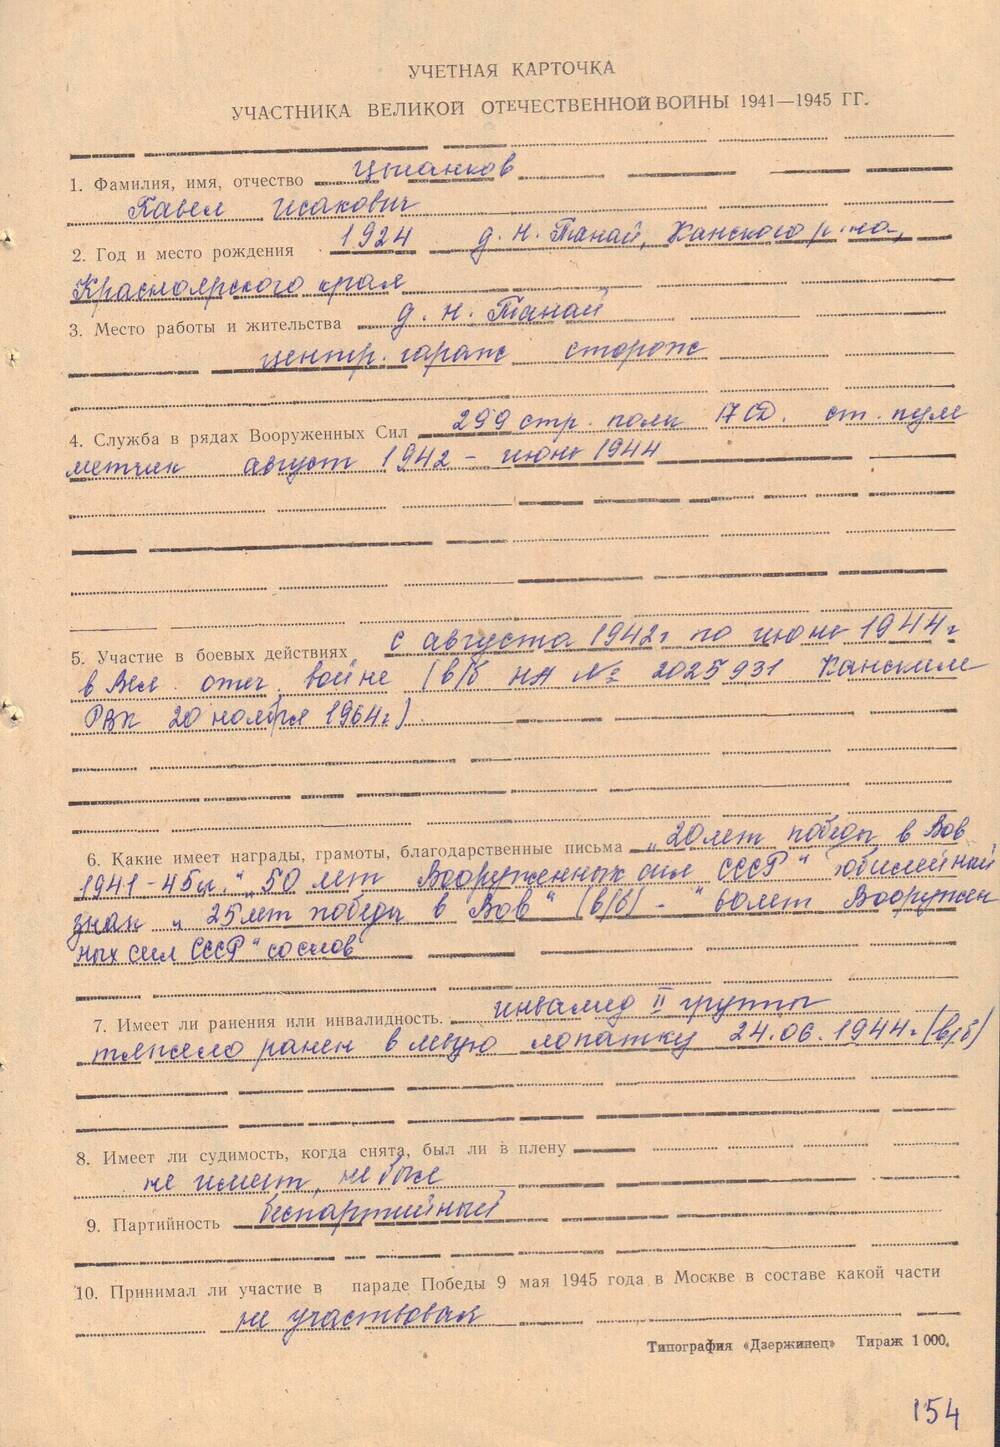 УЧЕТНАЯ КАРТОЧКА
УЧАСТНИКА ВЕЛИКОЙ ОТЕЧЕСТВЕННОЙ ВОЙНЫ 1941—1945 ГГ.
1. Фамилия, имя, отчество Цыганков
Павел Исакович
2. Год и место рождения 1924 д. Н. Танай, Канского р-на,
Красноярского края
3. Место работы и жительства д. Н. Танай
центр. гараж сторож
4. Служба в рядах Вооруженных Сил 299 стр. полк 17 СД. ст. пуле
метчик август 1942 - июнь 1944
5. Участие в боевых действиях с августа 1942 г по июнь 1944 г
в Вел. отеч. войне (в/б НА № 2025931 Канским
РВК 20 ноября 1964 г.)
6. Какие имеет награды, грамоты, благодарственные письма „20 лет победы в Вов
1941-45 гг." „50 лет Вооруженных сил СССР" юбилейный
знак „25 лет победы в Вов" (в/б) - "60 лет Вооружен
ных сил СССР" со слов
7. Имеет ли ранения или инвалидность. инвалид II группы
тяжело ранен в левую лопатку 24.06.1944 г (в/б)
8. Имеет ли судимость, когда снята, был ли в плену
не имеет, не был
9. Партийность беспартийный
10. Принимал ли участие в параде Победы 9 мая 1945 года в Москве в составе какой части
не участвовал
Типография «Дзержинец» Тираж 1 000.
154